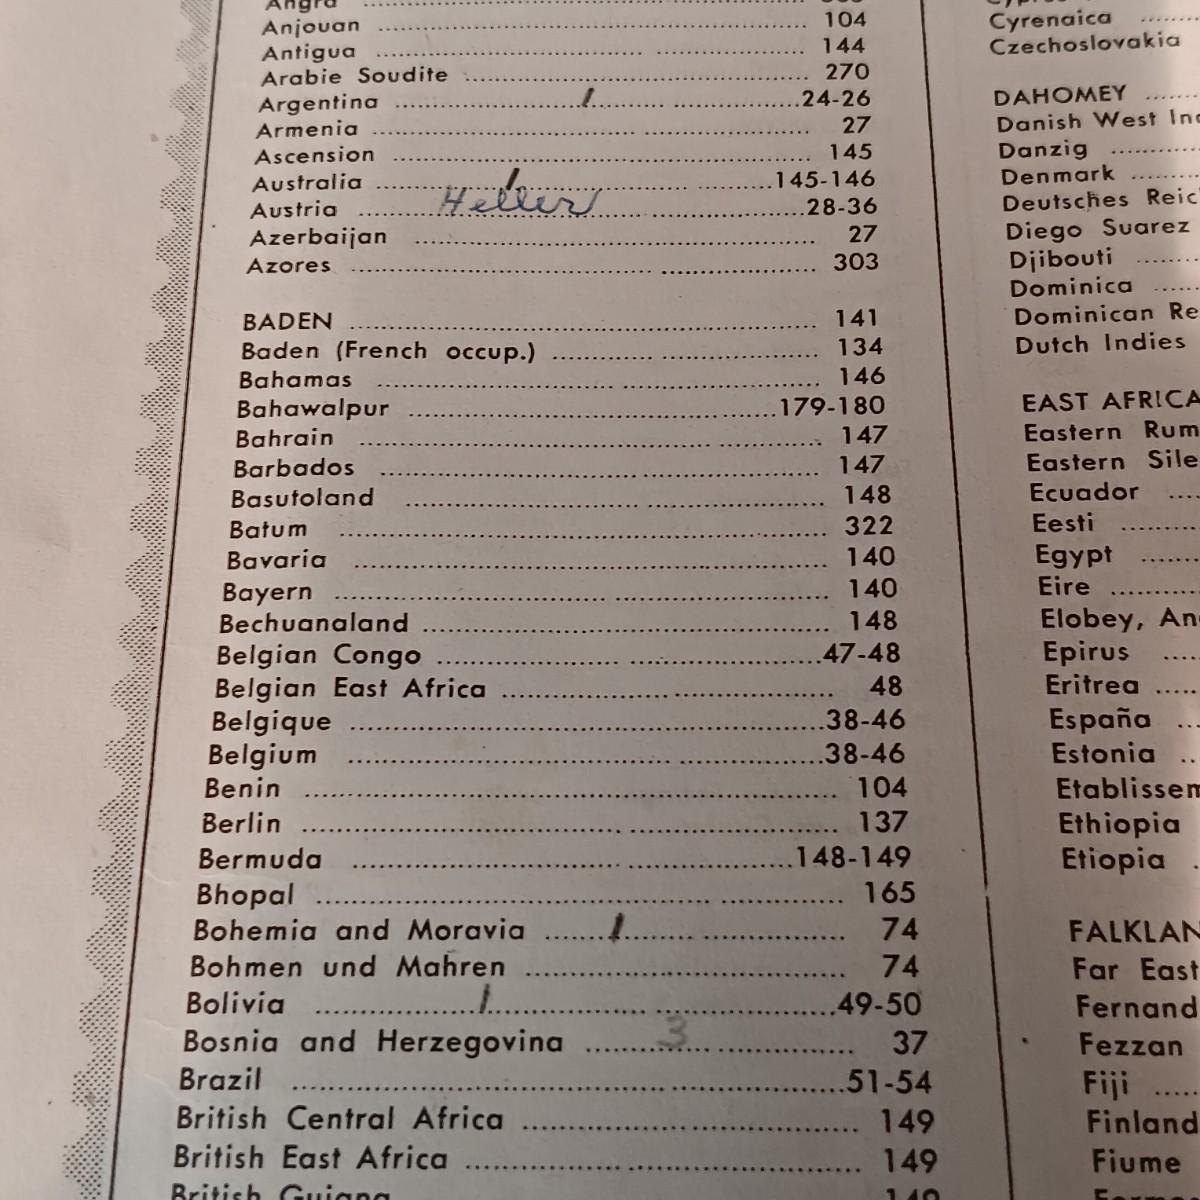 Angra ..........
Anjouan .......... 104
Antigua .......... 144
Arabie Soudite .......... 270
Argentina .......... 24-26
Armenia .......... 27
Ascension .......... 145
Australia .......... 145-146
Heller
Austria .......... 28-36
Azerbaijan .......... 27
Azores .......... 303
BADEN .......... 141
Baden (French occup.) .......... 134
Bahamas .......... 146
Bahawalpur .......... 179-180
Bahrain .......... 147
Barbados .......... 147
Basutoland .......... 148
Batum .......... 322
Bavaria .......... 140
Bayern .......... 140
Bechuanaland .......... 148
Belgian Congo .......... 47-48
Belgian East Africa .......... 48
Belgique .......... 38-46
Belgium .......... 38-46
Benin .......... 104
Berlin .......... 137
Bermuda .......... 148-149
Bhopal .......... 165
Bohemia and Moravia .......... 74
Bohmen und Mahren .......... 74
Bolivia .......... 49-50
Bosnia and Herzegovina .......... 3 .......... 37
Brazil .......... 51-54
British Central Africa .......... 149
British East Africa .......... 149
British Guiana 149
Cyrenaica ........
Czechoslovakia
DAHOMEY ......
Danish West Ind
Danzig ..........
Denmark ........
Deutsches Reic
Diego Suarez
Djibouti ........
Dominica ......
Dominican Re
Dutch Indies
EAST AFRICA
Eastern Rum
Eastern Sile
Ecuador ....
Eesti ........
Egypt ......
Eire ........
Elobey, An
Epirus ....
Eritrea .....
España ...
Estonia ..
Etablissem
Ethiopia
Etiopia .
FALKLAN
Far East
Fernand
Fezzan
Fiji .....
Finland
Fiume